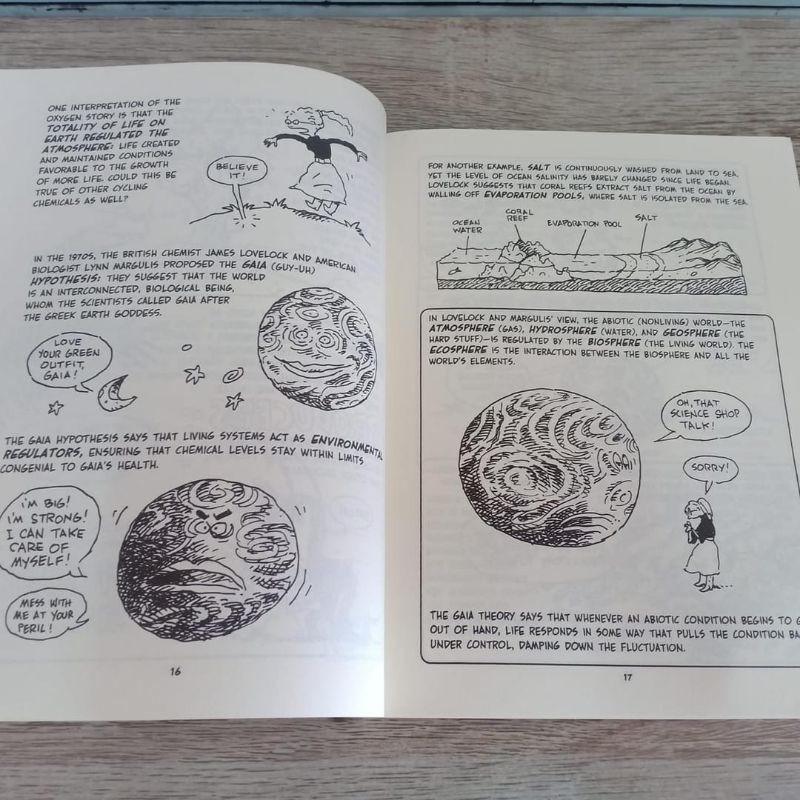 ONE INTERPRETATION OF THE
OXYGEN STORY IS THAT THE
TOTALITY OF LIFE ON
EARTH REGULATED THE
ATMOSPHERE: LIFE CREATED
AND MAINTAINED CONDITIONS
FAVORABLE TO THE GROWTH
OF MORE LIFE. COULD THIS BE
TRUE OF OTHER CYCLING
CHEMICALS AS WELL?
BELIEVE
IT!
IN THE 1970S, THE BRITISH CHEMIST JAMES LOVELOCK AND AMERICAN
BIOLOGIST LYNN MARGULIS PROPOSED THE GAIA (GUY-UH)
HYPOTHESIS: THEY SUGGEST THAT THE WORLD
IS AN INTERCONNECTED, BIOLOGICAL BEING,
WHOM THE SCIENTISTS CALLED GAIA AFTER
THE GREEK EARTH GODDESS.
LOVE
YOUR GREEN
OUTFIT,
GAIA!
THE GAIA HYPOTHESIS SAYS THAT LIVING SYSTEMS ACT AS ENVIRONMENTAL
REGULATORS, ENSURING THAT CHEMICAL LEVELS STAY WITHIN LIMITS
CONGENIAL TO GAIA'S HEALTH.
I'M BIG!
I'M STRONG!
I CAN TAKE
CARE OF
MYSELF!
MESS WITH
ME AT YOUR
PERIL!
16
FOR ANOTHER EXAMPLE, SALT IS CONTINUOUSLY WASHED FROM LAND TO SEA,
YET THE LEVEL OF OCEAN SALINITY HAS BARELY CHANGED SINCE LIFE BEGAN.
LOVELOCK SUGGESTS THAT CORAL REEFS EXTRACT SALT FROM THE OCEAN BY
WALLING OFF EVAPORATION POOLS, WHERE SALT IS ISOLATED FROM THE SEA.
OCEAN
WATER
CORAL
REEF
EVAPORATION POOL
SALT
IN LOVELOCK AND MARGULIS' VIEW, THE ABIOTIC (NONLIVING) WORLD—THE
ATMOSPHERE (GAS), HYDROSPHERE (WATER), AND GEOSPHERE (THE
HARD STUFF)—IS REGULATED BY THE BIOSPHERE (THE LIVING WORLD). THE
ECOSPHERE IS THE INTERACTION BETWEEN THE BIOSPHERE AND ALL THE
WORLD'S ELEMENTS.
OH, THAT
SCIENCE SHOP
TALK!
SORRY!
THE GAIA THEORY SAYS THAT WHENEVER AN ABIOTIC CONDITION BEGINS TO
OUT OF HAND, LIFE RESPONDS IN SOME WAY THAT PULLS THE CONDITION
UNDER CONTROL, DAMPING DOWN THE FLUCTUATION.
17